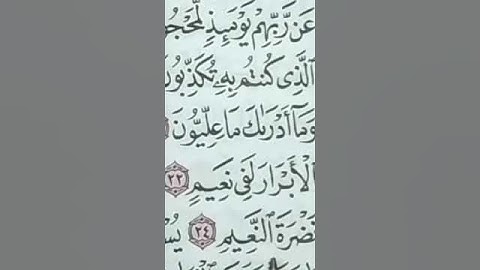 عَن رَّبِّهِمْ يَوْمَئِذٍ لَّمَحْجُو
ٱلَّذِى كُنتُم بِهِۦ تُكَذِّبُونَ
وَمَآ أَدْرَىٰكَ مَا عِلِّيُّونَ
ٱلْأَبْرَارَ لَفِى نَعِيمٍ ٢٢
نَضْرَةَ ٱلنَّعِيمِ ٢٤ يُسْ